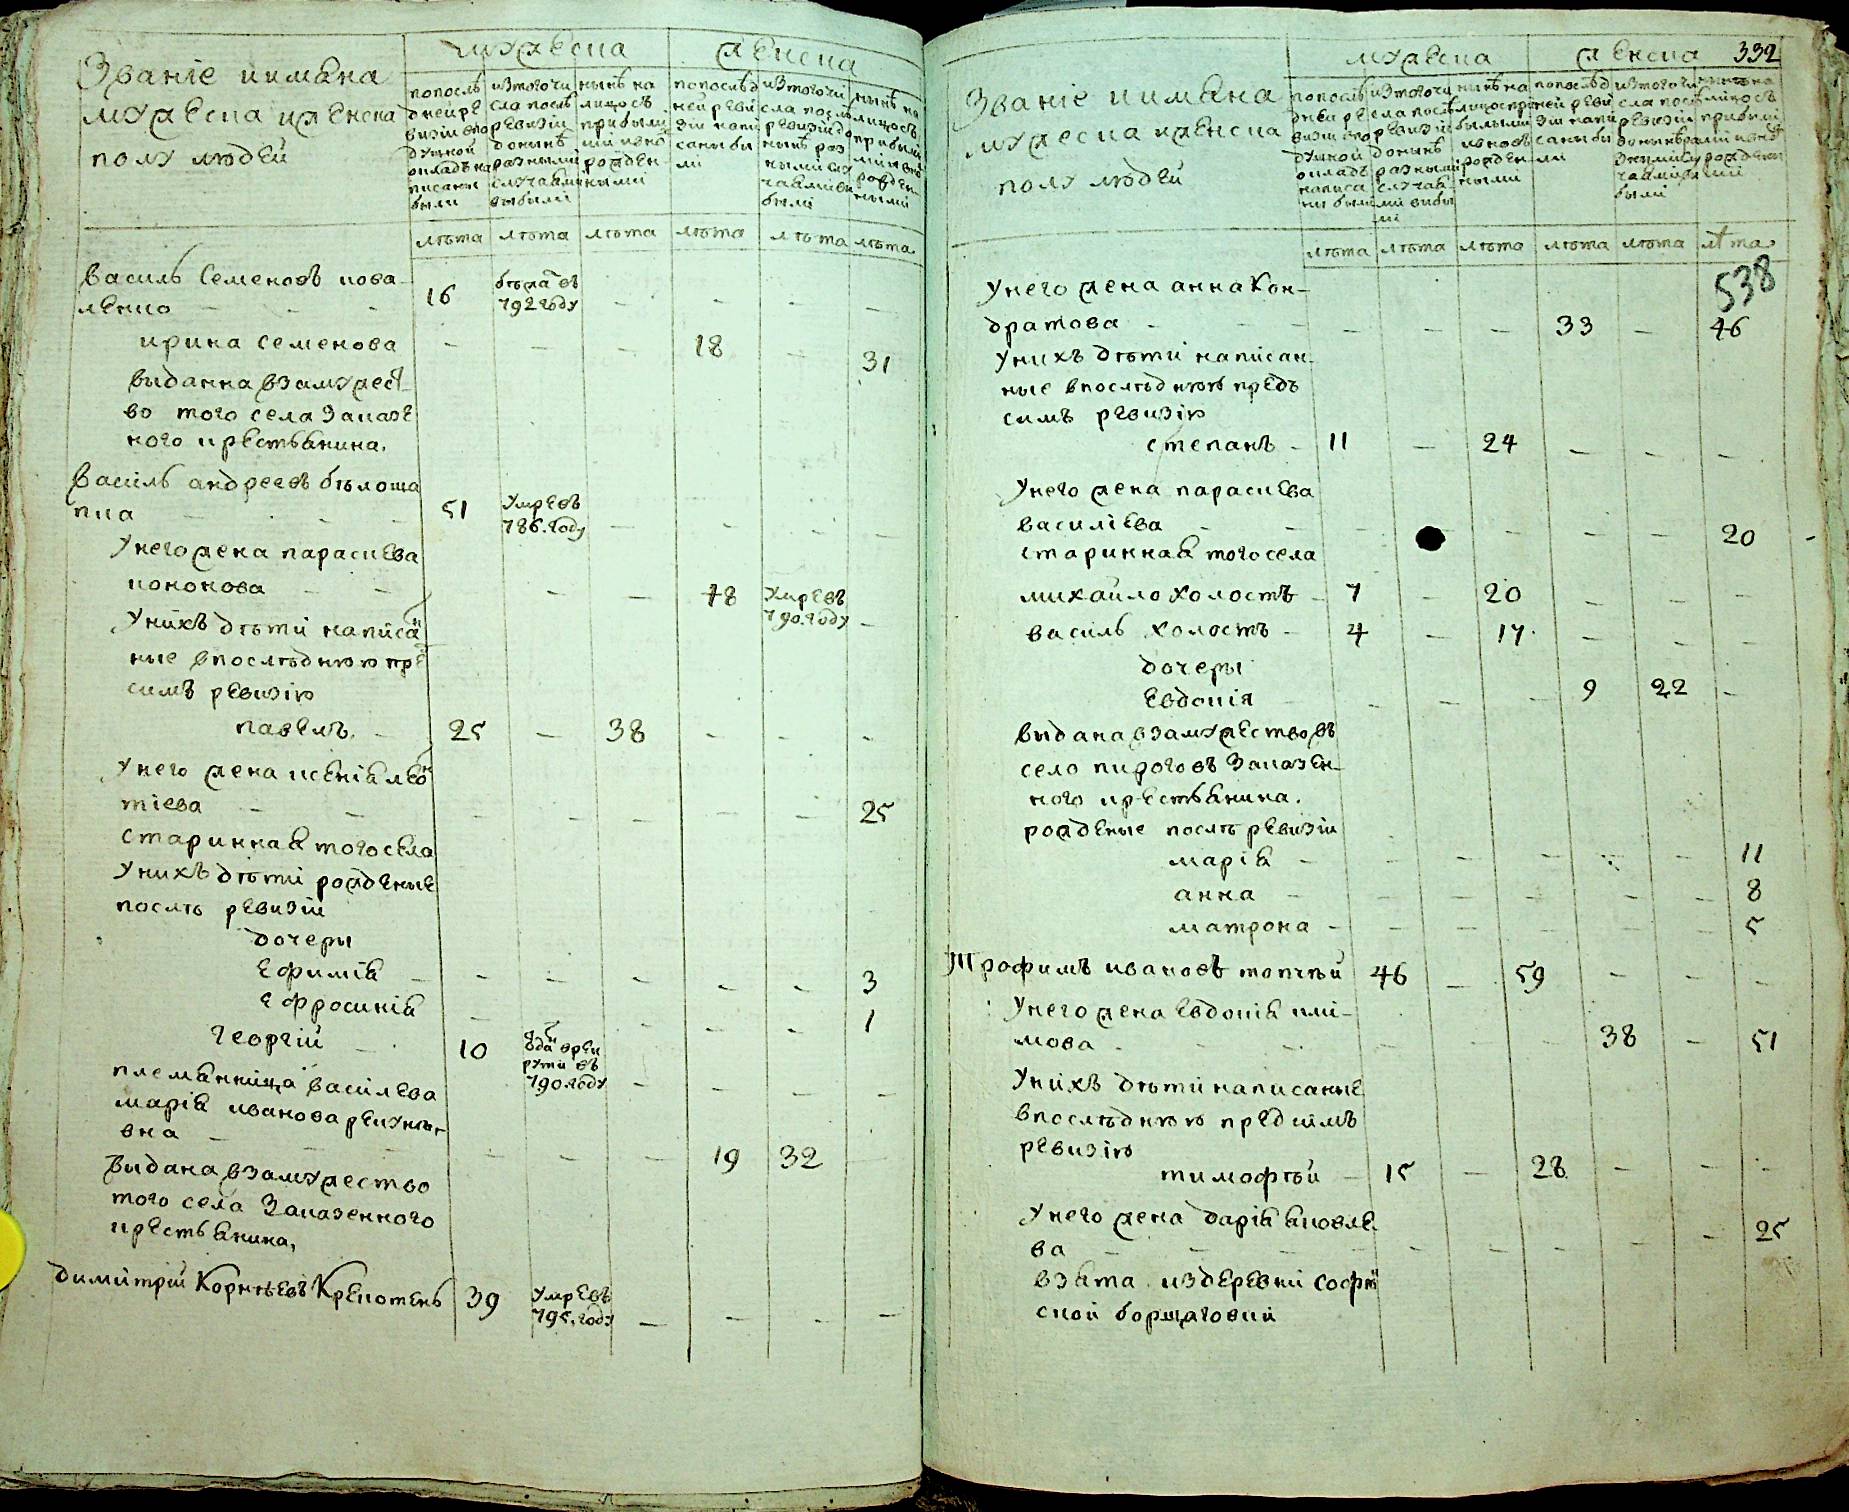 Званіе иимѧна
мужеска иженска
полу людей
мужеска
женска
попослѣ
днейре
визіи впо
душной
окладъ на
писаны
были
изтогочи
сла послѣ
ревизіи
донынѣ
разными
случаѧми
выбыли
нынѣ на
лицосъ
прибылы
ми ивно
рожден
ными
попослѣд
ней реви
зіи напи
саны бы
ли
изтогочи
сла послѣ
ревизіи до
нынѣ раз
ными слу
чаѧми вы
были
нынѣ на
лицосъ
прибылы
ми и внѡ
рожден
ными
лѣта лѣта лѣта лѣта лѣта лѣта
василь Семеновъ кова-
ленко - - - 16 бѣжа въ 792 году - - - -
ирина семенова - - - 18 - 31
выданна взамужест-
во того села Заказе
ного крестьѧнина.
василь андреевъ бѣлоша
пка - - - 51 умревъ 786. году - - - -
Унего жена параскева
кононова - - - - 48 умревъ 790. году -
Унихъ дѣти написа
ные впослѣднюю пре
симъ ревизію
павелъ. - 25 - 38 - - -
Унего жена ксеніѧ лео
тіева - - - - - - - 25
стариннаѧ того села
Унихъ дѣти рожденые
послѣ ревизіи
дочеры
ефиміѧ - - - - - - 3
ефросиніѧ - - - - - 1
георгій - 10 одан врек рути въ 790 году - - - -
племѧнница василева
маріѧ иванова рекунов
вна - - - - 19 32 -
выдана взамужество
того села Заказенного
крестьѧнина,
димитрій Корнѣевъ Крекотень 39 умревъ 795. году - - - -
332
Званіе иимѧна
мужеска иженска
полу людей
мужеска
женска
попослѣ
дней ре
визіи впо
душной
окладъ
написа
ны были
изтогочи
сла послѣ
ревизіи
донынѣ
разными
случаѧ
ми выбы
ли
нынѣ на
лицоспри
былыми
ивновъ
рожден
ными
попослѣд
ней реви
зіи напи
саны бы
ли
изтогочи
сла послѣ
ревизіи
донынѣра
зными слу
чаѧми вы
были
нынѣ на
лицосъ
прибылы
ми ивновъ
рожден
ными
лѣта лѣта лѣта лѣта лѣта лѣта
538
Унего жена анна Кон-
дратова - - - - - 33 - 46
Унихъ дѣти написан-
ные впослѣднюю предъ
симъ ревизію
степанъ - 11 - 24 - - -
Унего жена параскева
василіева - - - - - 20
стариннаѧ того села
михайло холостъ - 7 - 20 - - -
василь холостъ - 4 - 17. - - -
дочеры
евдокія - - - - 9 22 -
выдана взамужество въ
село пироговъ Заказен-
ного крестьѧнина.
рожденые послѣ ревизіи
маріѧ - - - - - - 11
анна - - - - - - 8
матрона - - - - - - 5
Трофимъ ивановъ топчѣй 46 - 59 - - -
Унего жена евдокіѧ кли-
мова - - - - 38 - 51
Унихъ дѣти написаные
впослѣднюю предсимъ
ревизію
тимофѣй - 15 - 28 - - -
Унего жена даріѧ ѧковле
ва - - - - - - - 25
взѧта издеревни софій
ской борщаговки